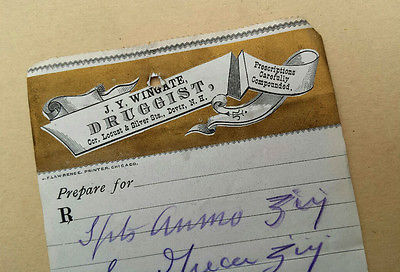 J. Y. WINGATE,
DRUGGIST,
Cor. Locust & Silver Sts., Dover, N. H.
Prescriptions
Carefully
Compounded.
LAWRENCE, PRINTER, CHICAGO.
Prepare for
R
Spts Ammo ʒij
ʒij